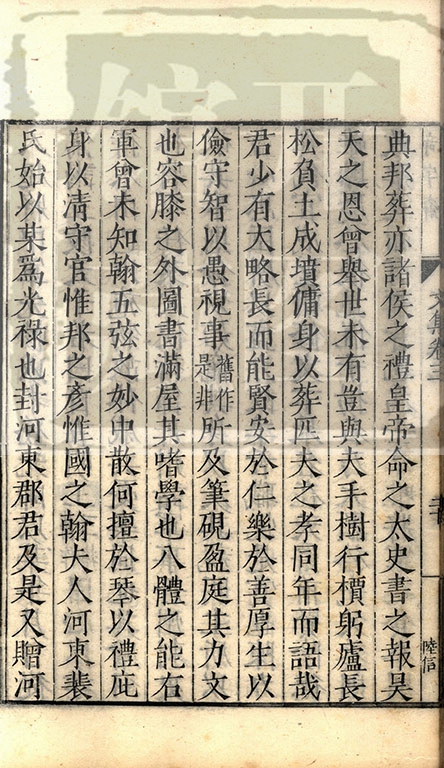 典邦葬亦諸侯之禮皇帝命之太史書之報昊
天之恩曾舉世未有豈與夫手樹行檟躬廬長
松負土成墳傭身以葬匹夫之孝同年而語哉
君少有大略長而能賢安於仁樂於善厚生以
儉守智以愚視事舊作是非所及筆硯盈庭其力文
也容膝之外圖書滿屋其嗜學也八體之能右
軍曾未知翰五弦之妙中散何擅於琴以禮庇
身以清守官惟邦之彥惟國之翰夫人河東裴
氏始以某爲光祿也封河東郡君及是又贈河
陸信